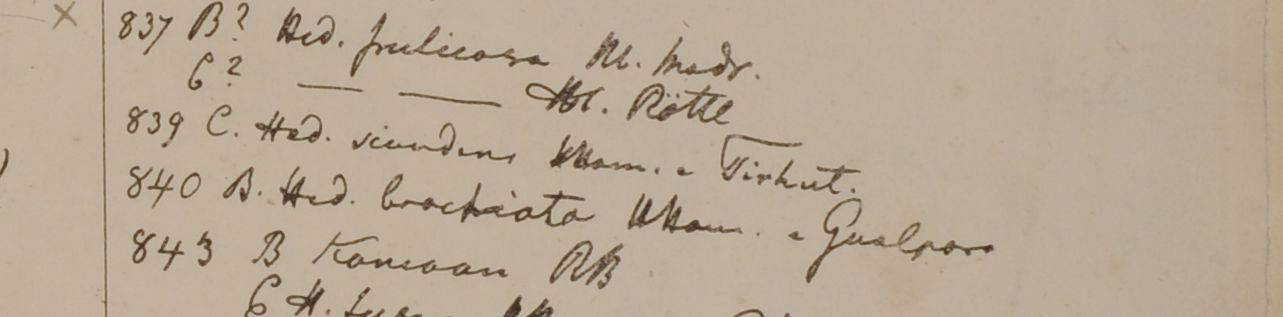 837 B? Hed. fruticosa Hb. Madr.
C? — — Hb. Röttl
839 C. Hed. scandens Ham. e Tirhut.
840 B. Hed. brachiata Ham. e Gualpara
843 B Kamaon RB
C H.